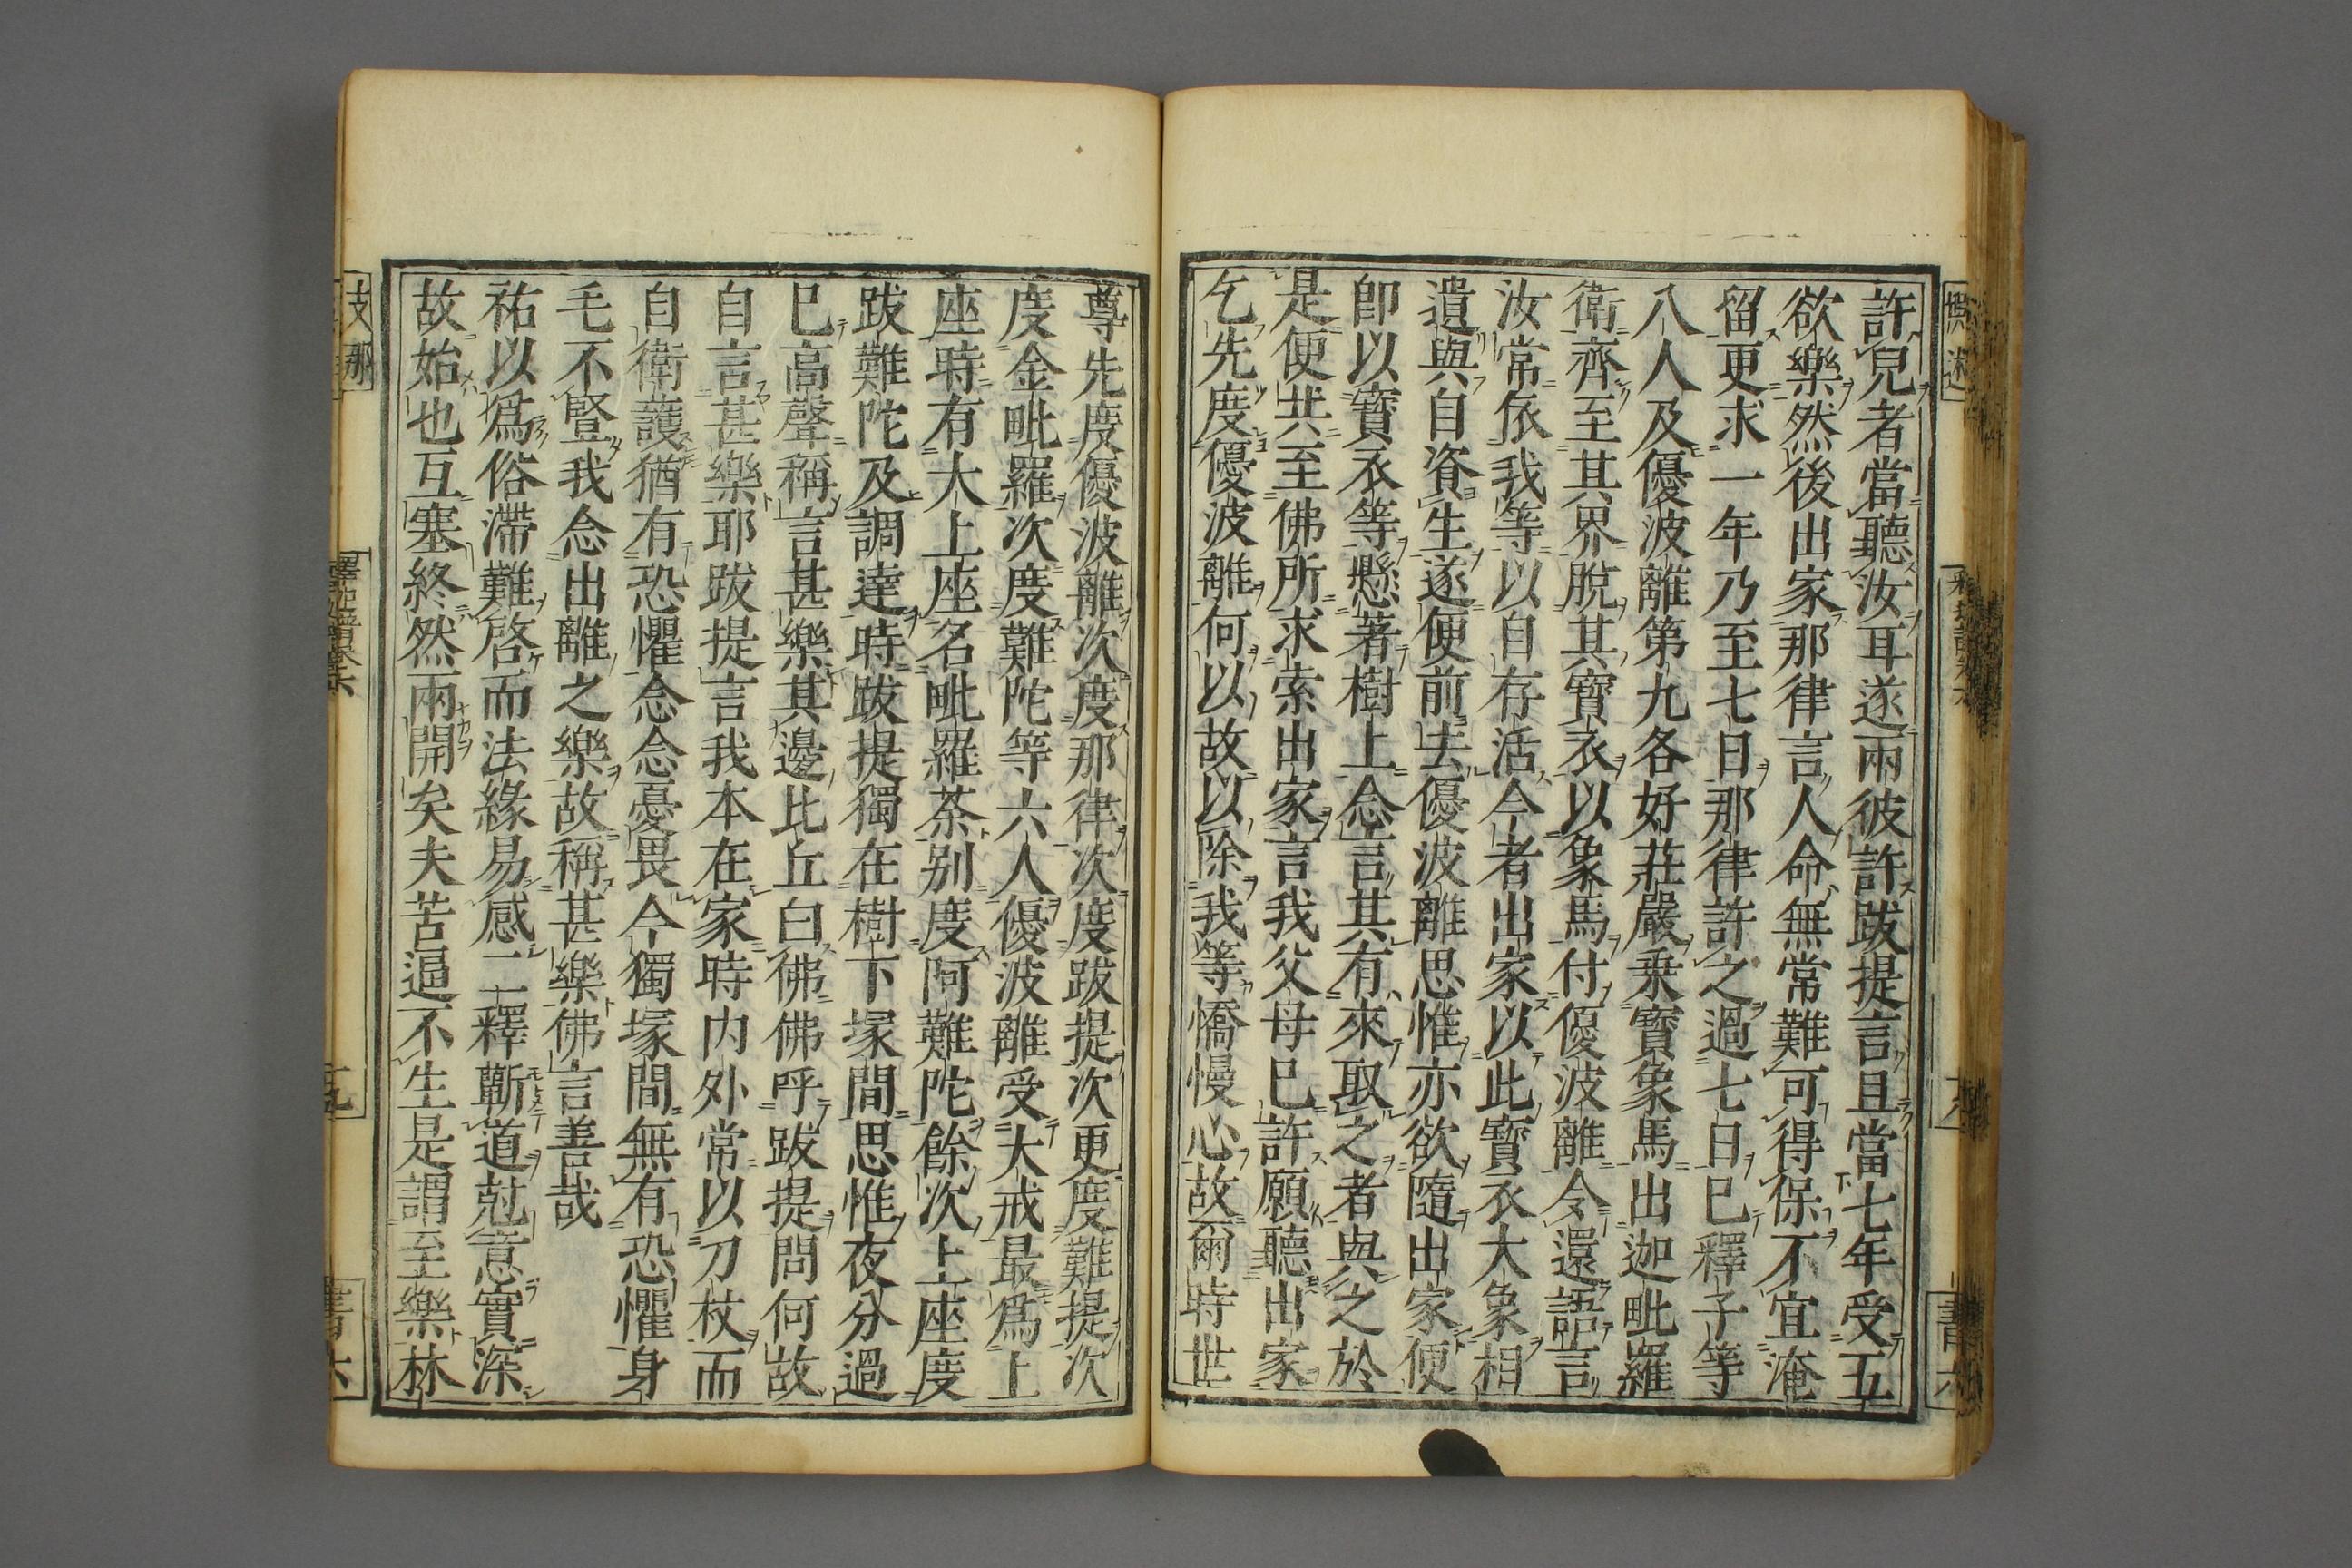 許兒者當聽汝耳遂兩彼許跋提言且當七年受五
欲樂然後出家那律言人命無常難可得保不宜淹
留更求一年乃至七日那律許之過七日已釋子等
八人及優波離第九各好莊嚴乗寶象馬出迦毗羅
衛齊至其界脫其寶衣以象馬付優波離令還語言
汝常依我等以自存活今者出家以此寶衣大象相
遺與自資生遂便前去優波離思惟亦欲隨出家便
卽以寶衣等懸著樹上念言其有來取之者與之於
是便共至佛所求索出家言我父母已許願聽出家
乞先度優波離何以故以除我等憍慢心故爾時世
尊先度優波離次度那律次度跋提次更度難提次
度金毗羅次度難陀等六人優波離受大戒最爲上
座時有大上座名毗羅茶别度阿難陀餘次上座度
跋難陀及調達時跋提獨在樹下塚間思惟夜分過
已高聲稱言甚樂其邊比丘白佛佛呼跋提問何故
自言甚樂耶跋提言我本在家時内外常以刀杖而
自衛護猶有恐懼念念憂畏今獨塚間無有恐懼身
毛不豎我念出離之樂故稱甚樂佛言善哉
祐以爲俗滯難啓而法緣易感二釋蘄道愆意實深
故始也互塞終然兩開矣夫苦逼不生是謂至樂林
支那